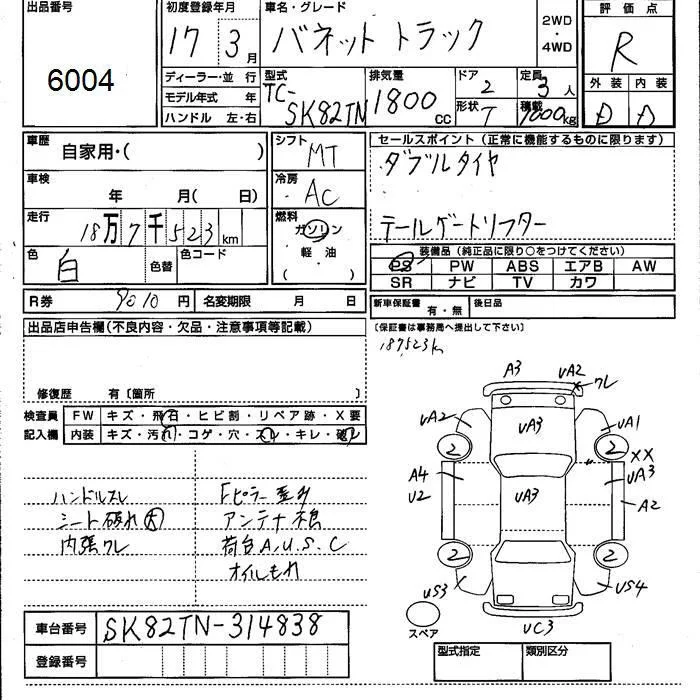 出品番号
6004
初度登録年月
17 3月
車名・グレード
バネット トラック
2WD
・
4WD
評価点
R
ディーラー・並 行
モデル年式 年
ハンドル 左・右
型式
TC-
SK82TN
排気量
1800 cc
ドア 2
形状 T
定員 3人
積載 1000kg
外装 内装
D D
車歴
自家用・( )
車検
年 月( 日)
走行
18万7千523km
色
白
色替
色コード
シフト
MT
冷房
AC
燃料
ガソリン
軽油
( )
セールスポイント(正常に機能するものに限ります)
ダブルタイヤ
テールゲートリフター
装備品(純正品に限り○をつけてください)
PS PW ABS エアB AW
SR ナビ TV カワ
R券 9010円 名変期限 月 日
新車保証書 有・無 後日品
(保証書は事務局へ提出して下さい)
187,523km
出品店申告欄(不良内容・欠品・注意事項等記載)
修復歴 有〔箇所 〕
検査員
記入欄
FW キズ・飛石・ヒビ割・リペア跡・X要
内装 キズ・汚れ・コゲ・穴・スレ・キレ・破レ
ハンドルスレ
シート破れ大
内張ワレ
Fピラー歪み
アンテナ不良
荷台A,U,S,C
オイルもれ
A3 UA2 ワレ
UA2 UA3 UA1
2 2
XX
A4 UA3
U2 UA3 A2
2 2
US3 US4
UC3
スペア
車台番号 SK82TN-314838
登録番号
型式指定 類別区分